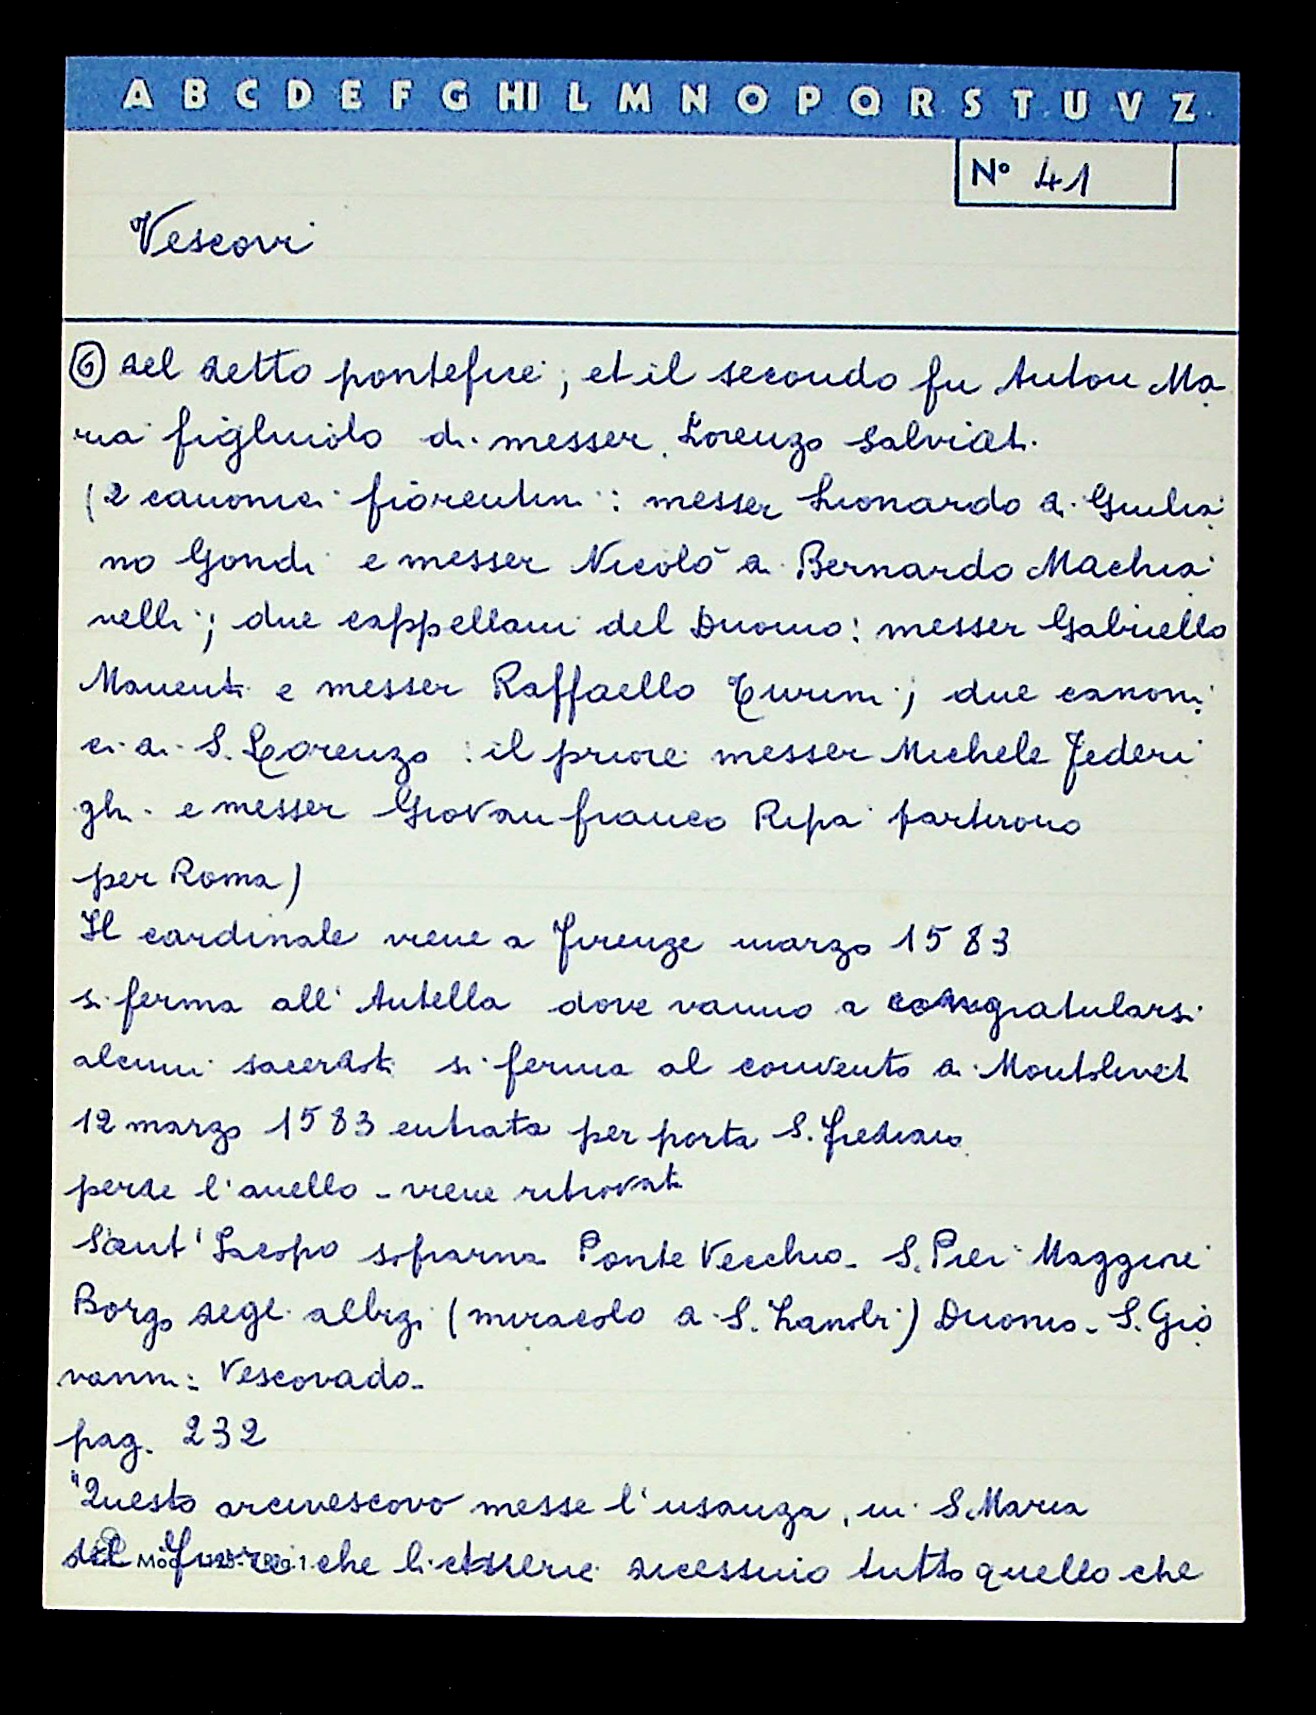 A B C D E F G HI L M N O P Q R S T U V Z
N° 41
Vescovi
6 del detto pontefice; et il secondo fu Anton Ma
ria figliuolo di messer Lorenzo Salviati.
(2 canonici fiorentini: messer Lionardo di Giulia
no Gondi e messer Nicolò di Bernardo Machia
velli; due cappellani del Duomo: messer Gabriello
Manenti e messer Raffaello Turini; due canoni
ci di S. Lorenzo: il priore messer Michele Federi
ghi e messer Giovanfranco Ripa partirono
per Roma)
Il cardinale viene a Firenze marzo 1583
si ferma all'Antella dove vanno a congratularsi
alcuni sacerdoti si ferma al convento di Montoliveti
12 marzo 1583 entrata per porta S. Frediano
perse l'anello - viene ritrovato
Sant'Jacopo soprarno Ponte Vecchio - S. Pier Maggiore
Borgo degli albizi (miracolo di S. Zanobi) Duomo - S. Gio
vanni - Vescovado -
pag. 232
"Questo arcivescovo messe l'usanza, in S. Maria
del Fiore che li dicessino tutto quello che